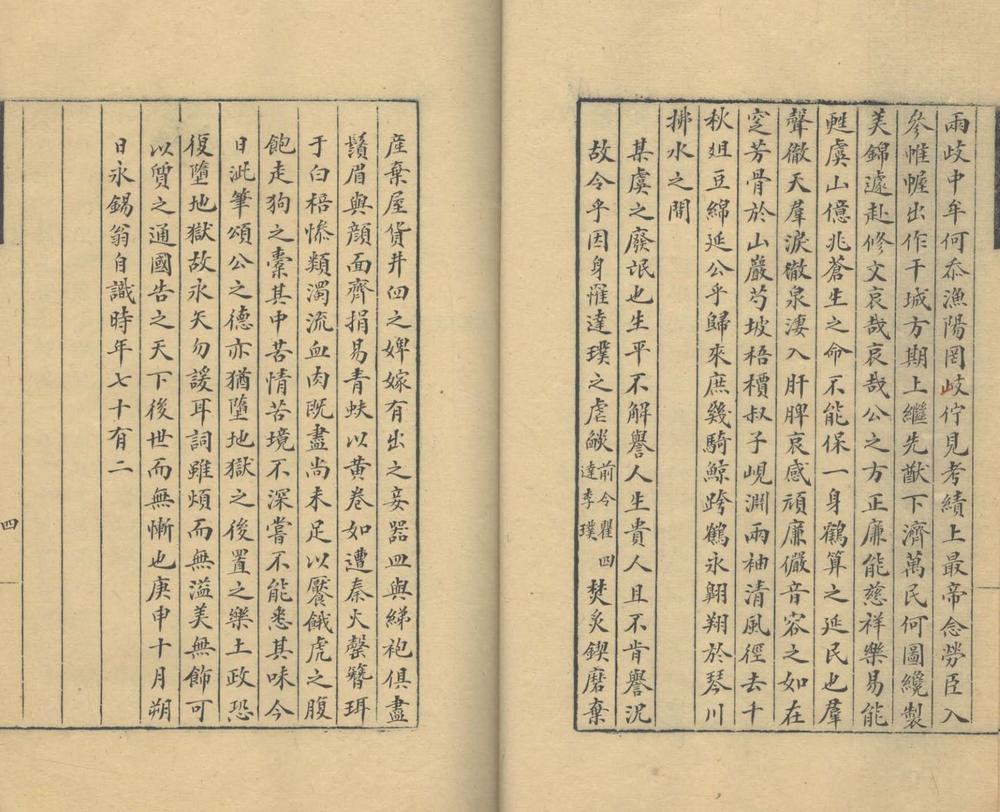 兩歧中牟何忝漁陽罔岐佇見考績上最帝念勞臣入
參帷幄出作干城方期上繼先猷下濟萬民何圖纔製
美錦遽赴修文哀哉哀哉公之方正廉能慈祥樂易能
甦虞山億兆蒼生之命不能保一身鶴算之延民也羣
聲徹天羣淚徹泉淒入肝脾哀感頑廉儼音容之如在
窆芳骨於山巖芍坡梧檟叔子峴淵兩袖清風徑去千
秋俎豆綿延公乎歸來庶幾騎鯨跨鶴永翺翔於琴川
拂水之間
某虞之廢氓也生平不解譽人生貴人且不肯譽況
故令乎因身罹達璞之虐燄前令瞿四達李璞焚炙鍥磨棄
產棄屋貨井臼之婢嫁有出之妾器皿與綈袍俱盡
鬚眉與顏面齊捐易青蚨以黃卷如遭秦火罄簪珥
于白梧慘類濁流血肉既盡尚未足以饜餓虎之腹
飽走狗之橐其中苦情苦境不深嘗不能悉其味今
日泚筆頌公之德亦猶墮地獄之後置之樂土政恐
復墮地獄故永矢勿諼耳詞雖煩而無溢美無飾可
以質之通國告之天下後世而無慚也庚申十月朔
日永錫翁自識時年七十有二
四